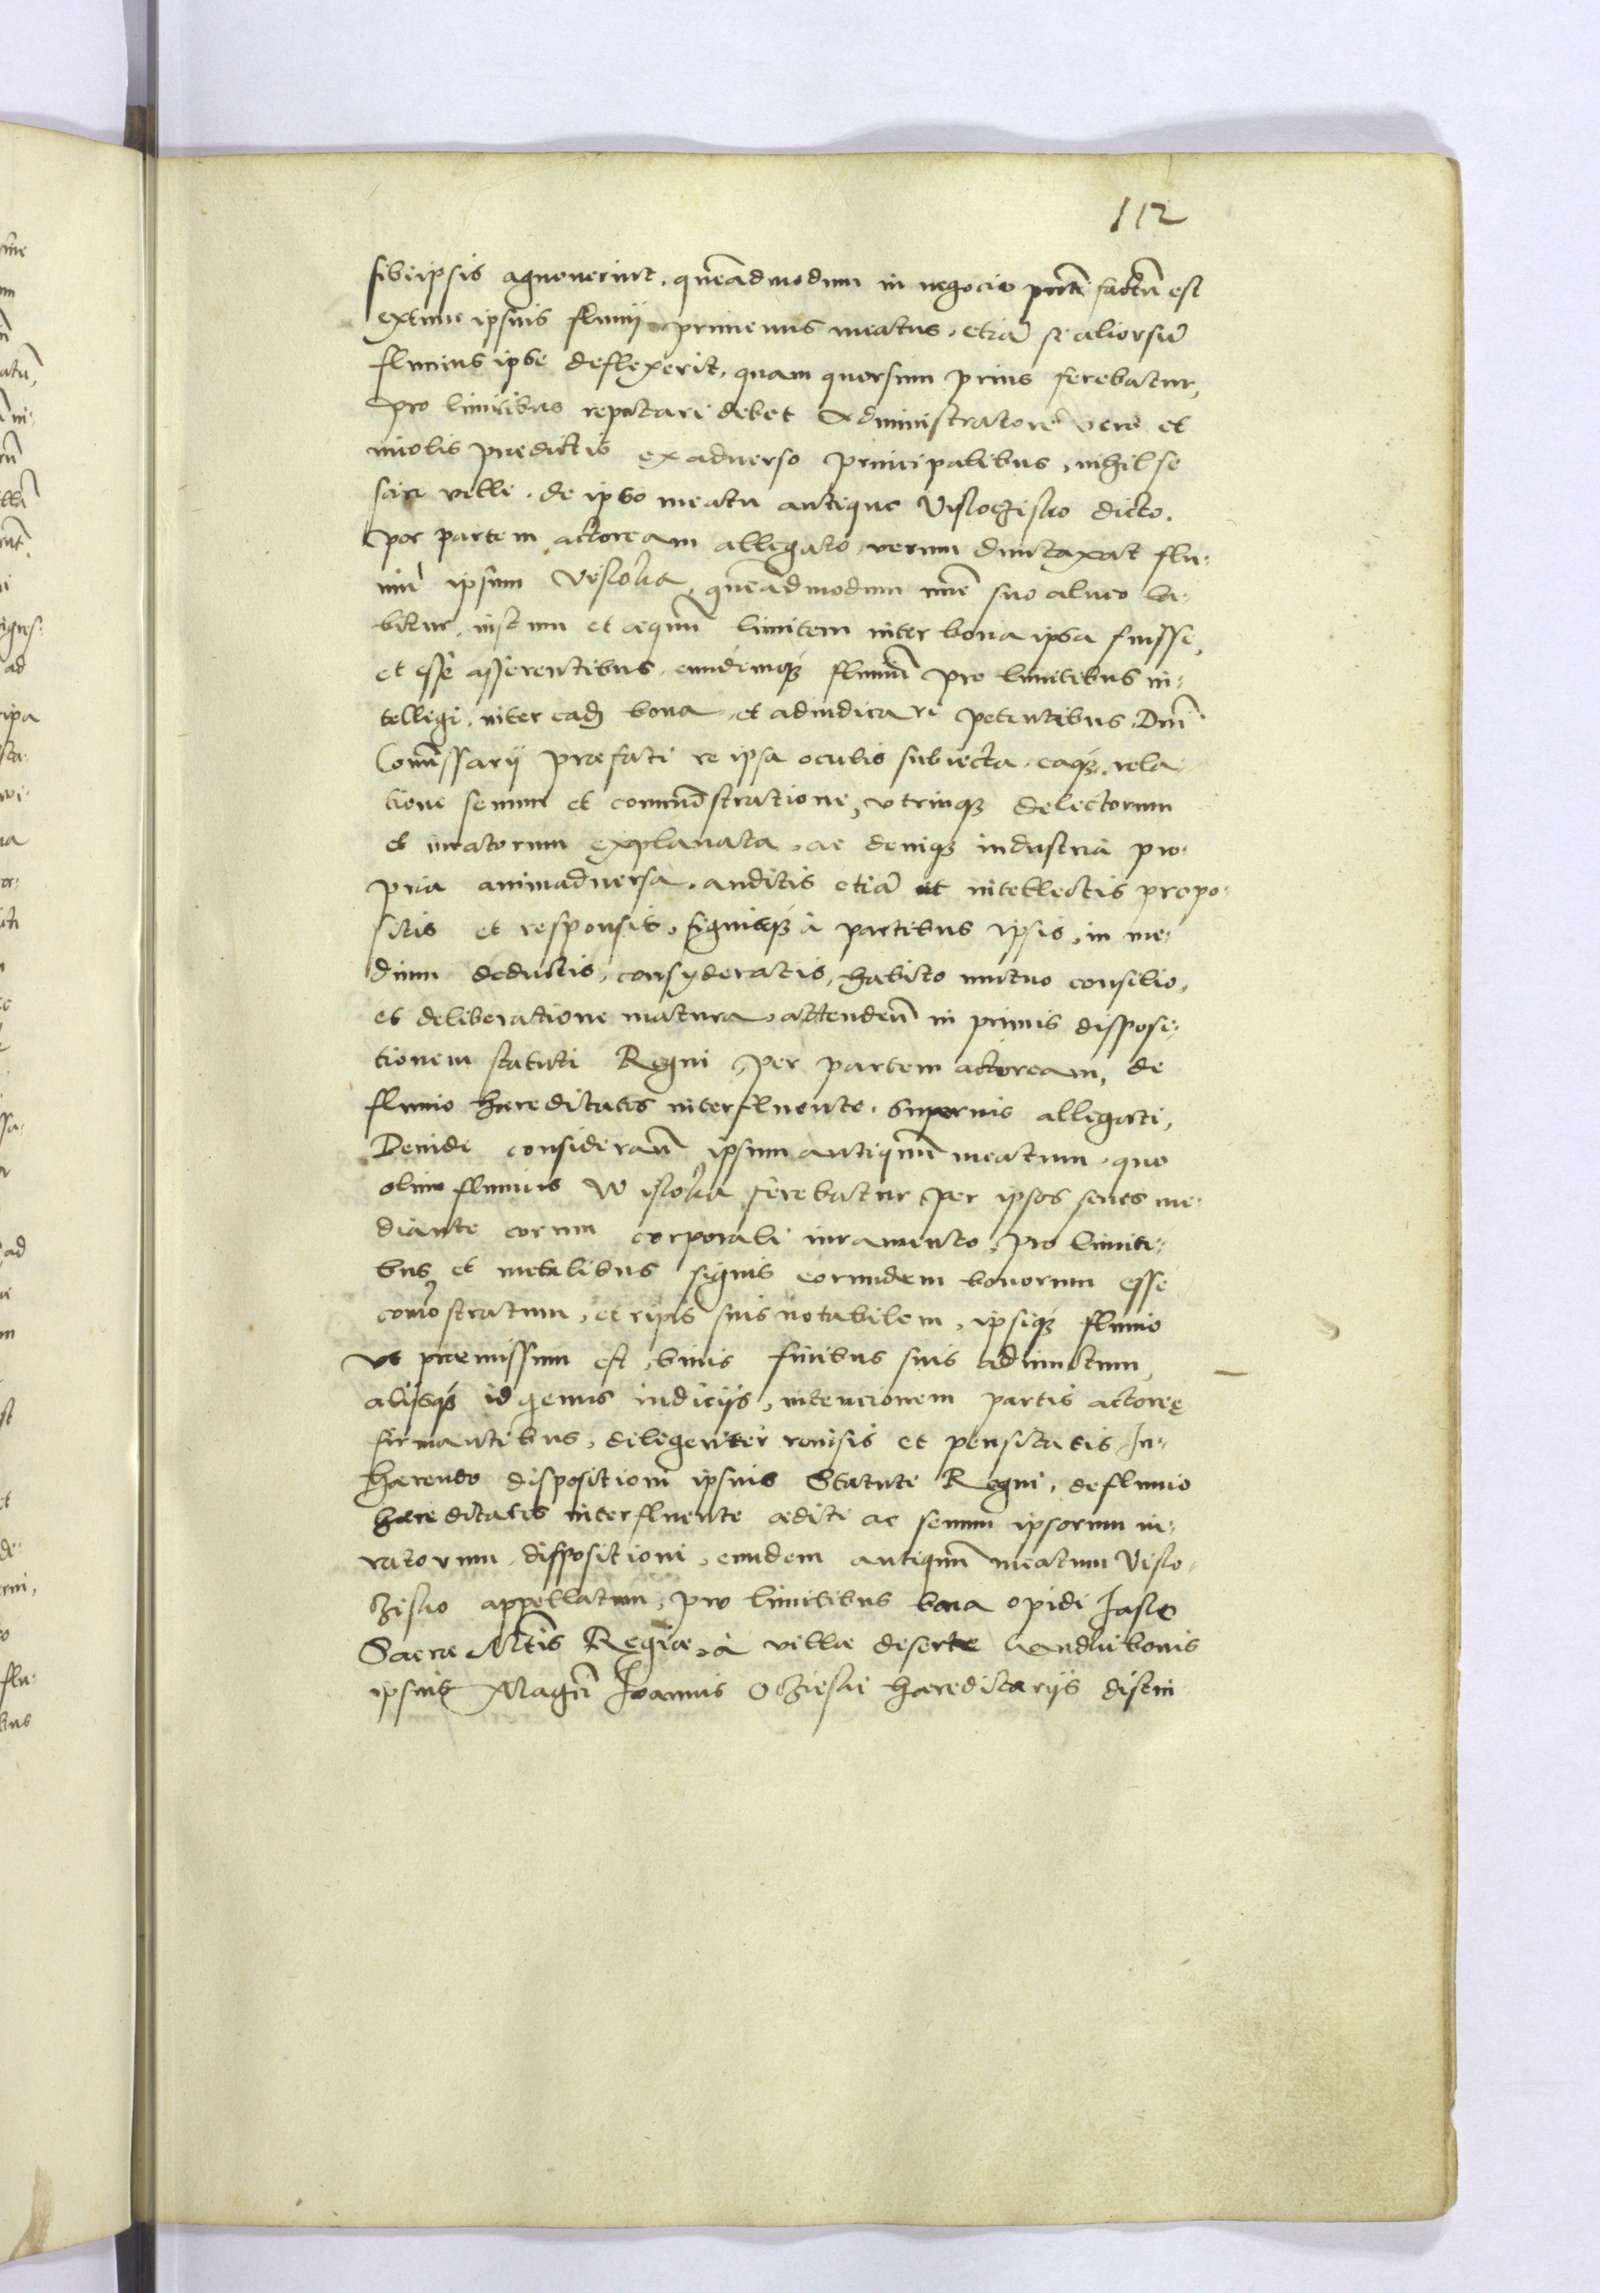 112
sibiipsis agnoverint, queadmodum in negocio pñti factũ est
extunc ipsius fluuij primeuus meatus, etiã si aliorsũ
fluuius ipse deflexerit, quam quorsum prius ferebatur,
pro limitibus reputari debet Administratore vero et
incolis predictis ex adverso principalibus, nihil se
scire velle, de ipso meatu antiquo Visloczisko dicto,
per partem actoream allegato, verum duntaxat flu-
uiũ ipsum Visloka, queadmodum nũc suo alueo la-
bitur, iustum et æquũ limitem inter bona ipsa fuisse,
et esse asserentibus, eundemqȝ fluuiũ pro limitibus in-
telligi, inter eadẽ bona et adiudicari petentibus, Dñi
Comissarij præfati re ipsa oculis subiecta, eaqȝ rela-
tione senum et comõstratione, vtrinqȝ delectorum
et iuratorum explanata, ac deniqȝ industria pro-
pria animaduersa, auditis etiã et intellectis propo-
sitis et responsis, signisqȝ à partibus ipsis, in me-
dium deductis, consyderatis, habito mutuo consilio,
et deliberatione matura, attendeñ in primis disposi-
tionem statuti Regni per partem actoream, de
fluuio hæreditates interfluente, superius allegati,
Deinde considerañ ipsum antiquũ meatum, quo
olim fluuius Wisloka ferebatur per ipsos senes me-
diante eorum corporali iuramento, pro limiti-
bus et metalibus signis eorundem bonorum esse
comõstratum, et ripis suis notabilem, ipsiqȝ fluuio
vt præmissum est, binis finibus suis adiunctum,
alijsqȝ id genus indicijs, intencionem partis actoreę
firmantibus, diligenter reuisis et pensitatis, In-
hærendo dispositioni ipsius Statuti Regni, de fluuio
hæreditates interfluente æditi ac senum ipsorum iu-
ratorum, dispositioni, eundem antiquũ meatum Vislo-
czisko appellatum, pro limitibus bona opidi Jaslo
Sacræ Mtis Regiæ, à villæ desertæ bonis
ipsius Magci Joannis hæreditarijs distin